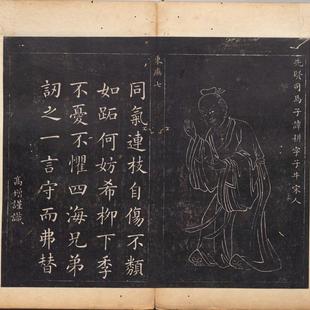 先賢司馬子諱耕字子牛宋人
東廡七
同氣連枝自傷不類
如跖何妨希柳下季
不憂不懼四海兄弟
訒之一言守而弗替
高増謹識